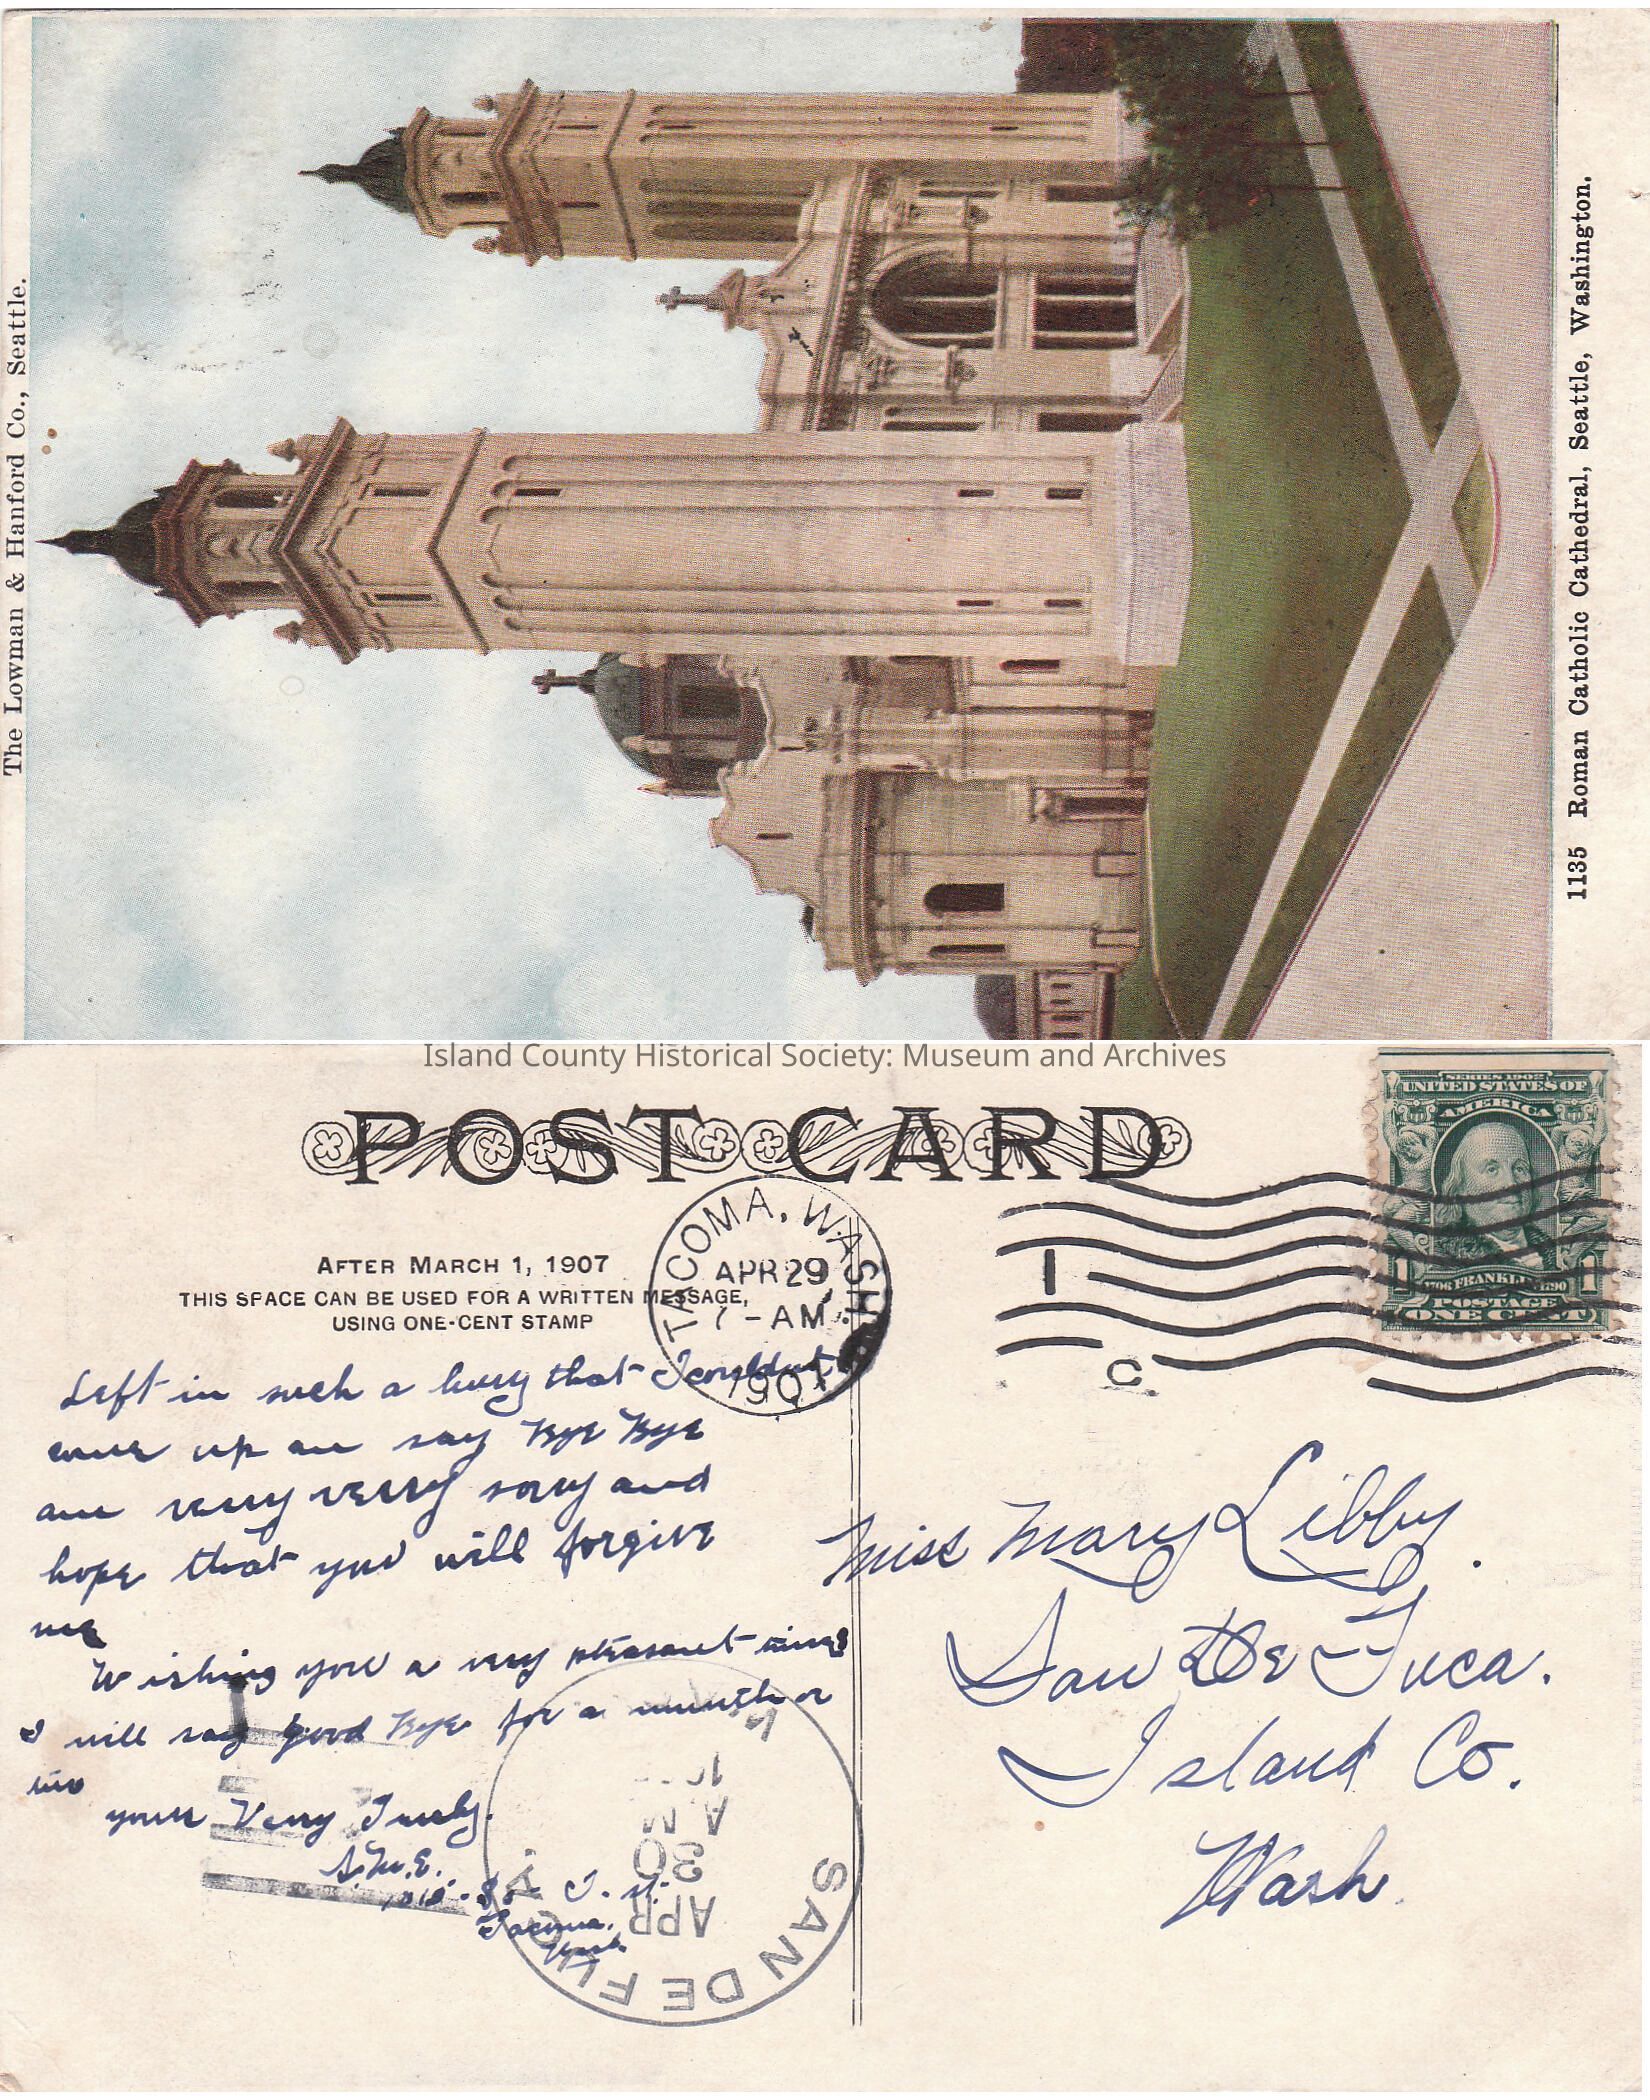 The Lowman & Hanford Co., Seattle.
1135 Roman Catholic Cathedral, Seattle, Washington.
Island County Historical Society: Museum and Archives
POST CARD
SERIES 1902
UNITED STATES OF
AMERICA
1706 FRANKLIN 1790
1 1
POSTAGE
ONE CENT
TACOMA, WASH.
APR 29
7 - AM
1907
1
C
AFTER MARCH 1, 1907
THIS SPACE CAN BE USED FOR A WRITTEN MESSAGE,
USING ONE-CENT STAMP
Left in such a hurry that I couldnt
come up an say Bye Bye
am very verry sorry and
hope that you will forgive
me
Wishing you a very pleasant time
I will say good Bye for a munth or
two
yours Very Truly.
S.M.E.
T. St.
Tacoma.
Wash
Miss Mary Libby.
San De Fuca.
Island Co.
Wash.
SAN DE FUCA
APR
30
A.M.